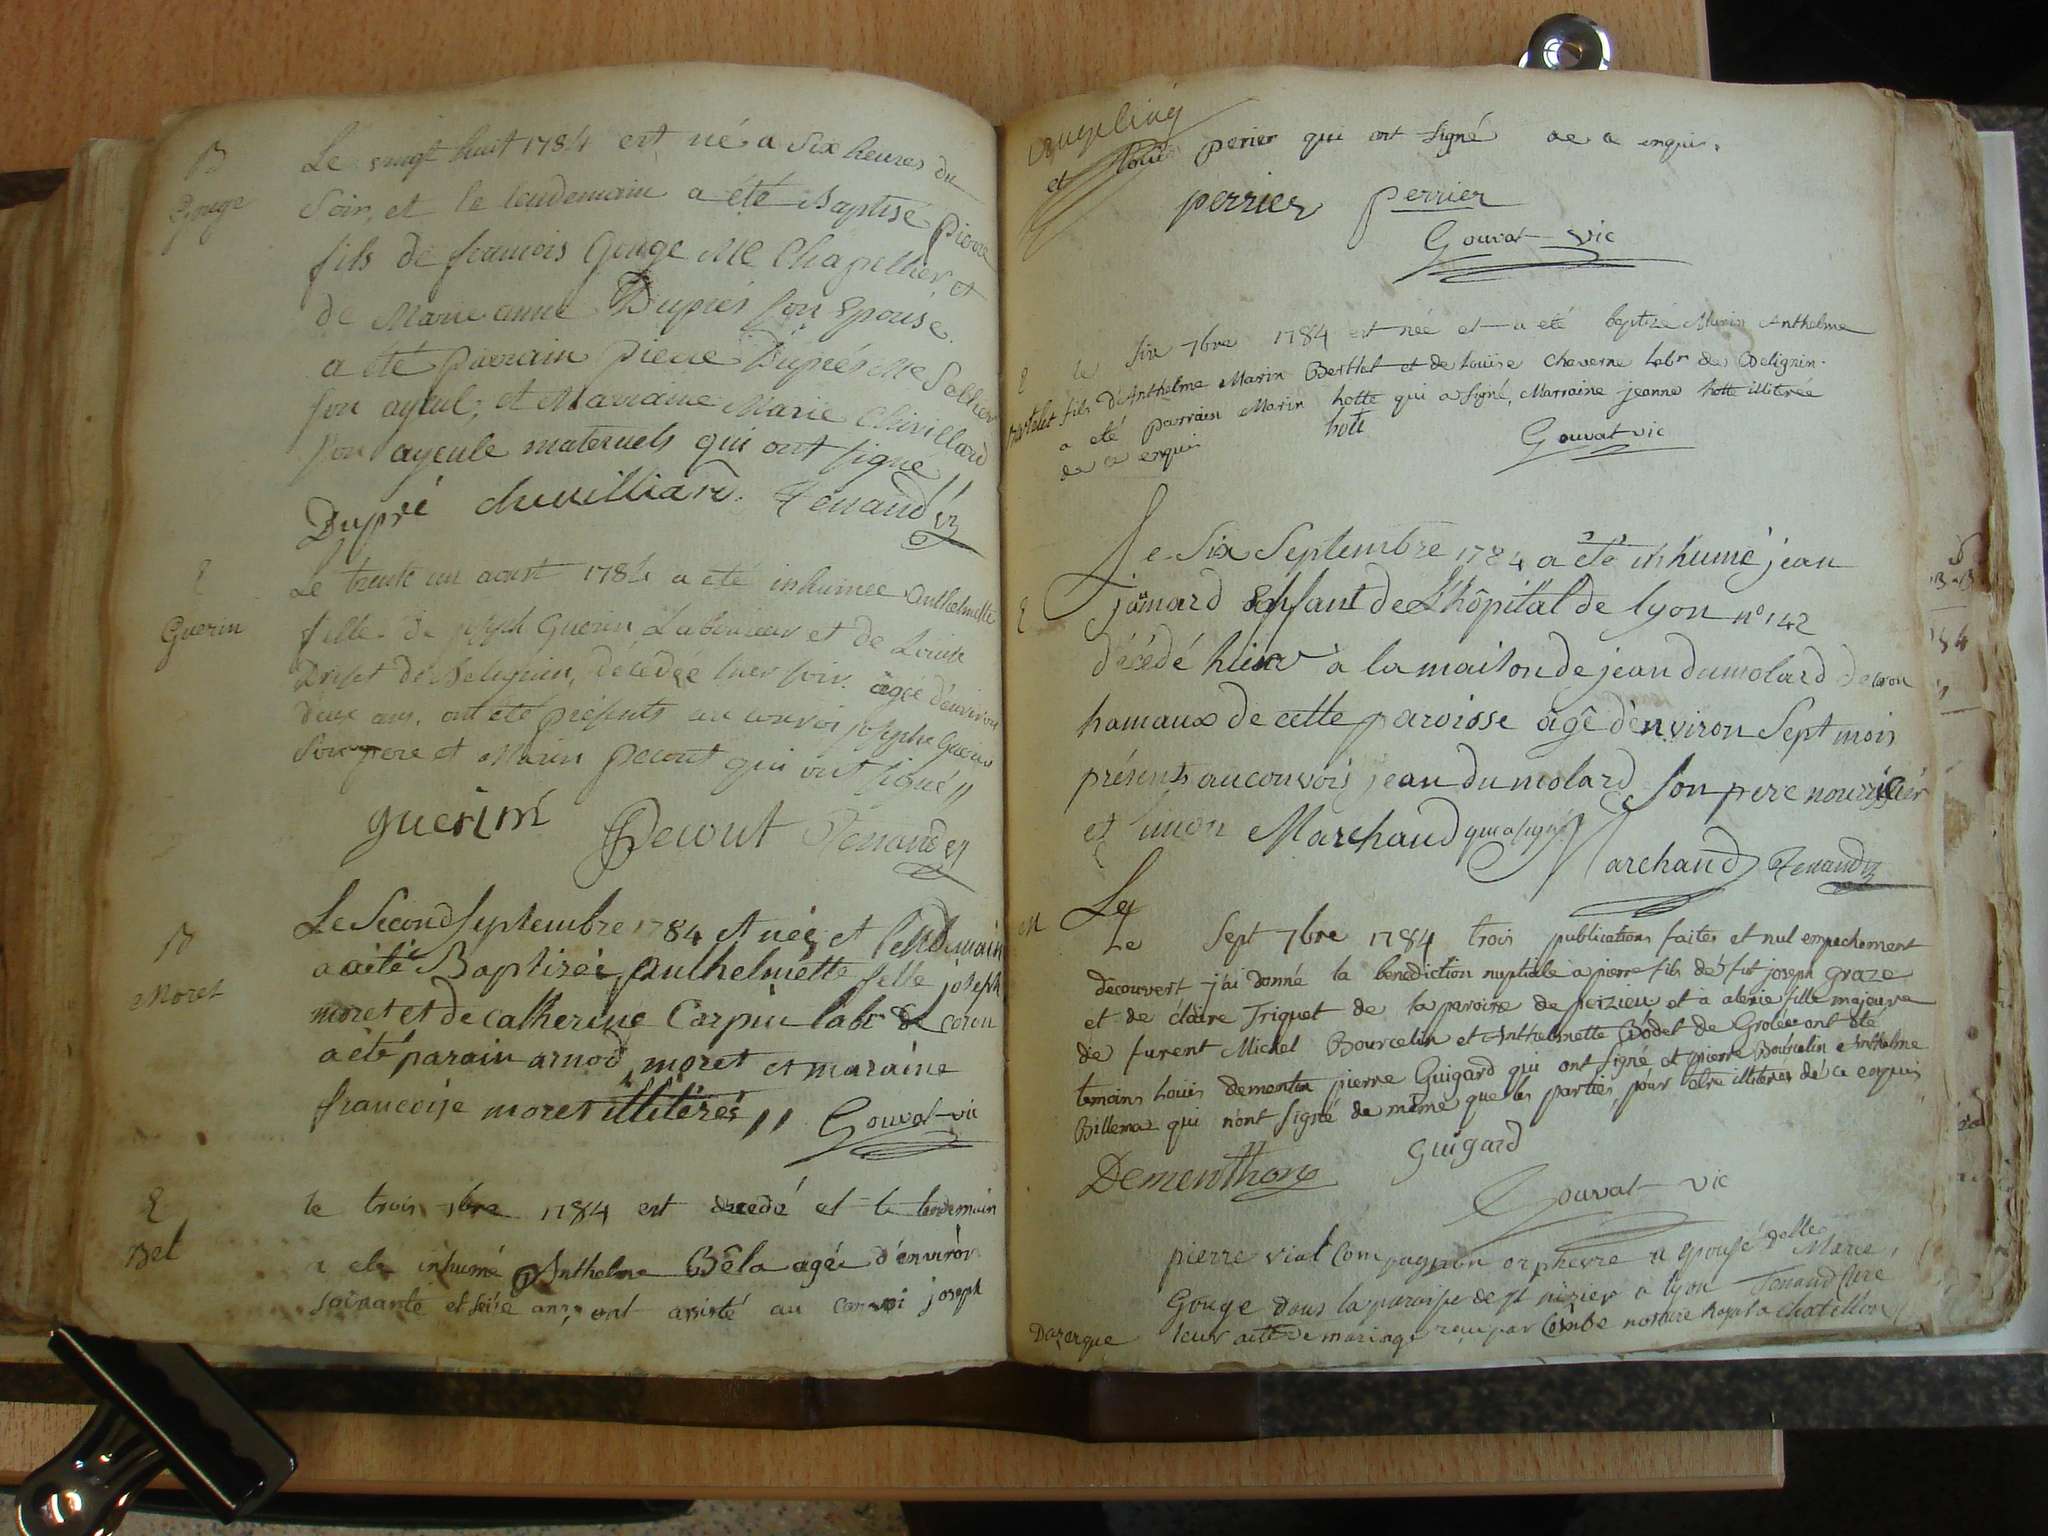 B
Gouge
Le vingt huit 1784 est né a Six heures du
Soir, et le lendemain a été Baptisé Pierre
fils de francois Gouge Me Chapellier, et
de Marie anne Duprés son Epouse
a été parrain Pierre Duprés Me Sellier
son ayeul, et Marraine Marie Chivilliard
son ayeule maternels qui ont signé //
Dupré chuvilliard. Tenand vz
E
Guerin
Le trente un aoust 1784 a été inhumée Anthelmette
fille de joseph Guerin Laboureur et de Louise
de Belignin, décédée hier soir agée d'environ
deux ans. ont été présents au convoi joseph Guerin
Son pere et Marin Pecout qui ont signé //
guerin Pecout Tenand vz
B
Moret
Le Second Septembre 1784 et née et lendemain
a aété Baptizée Anthelmette fille joseph
moret et de catherine Carpin labr de coron
a été parain arnod moret et maraine
francoise moret illitérés // Gouvat vic
E
Bel
le trois 7bre 1784 est decedé et le lendemain
a ete inhumé Anthelme Bêla agée d'environ
soixante et seize ans, ont assisté au convoi joseph
et Louis perier qui ont signé de ce enquis.
perrier perrier
Gouvat vic
E
le six 7bre 1784 est née et a été baptizé Marin Anthelme
Berthet fils d'Anthelme Marin Berthet et de Louise Chaverne labr de Belignin.
a été parrain Marin hotte qui a signé, Marraine jeanne hotte illiterée
de ce enquis hotte Gouvat vic
E
Le Six Septembre 1784 a été inhumé jean
jamard Enfant de L'hôpital de lyon n° 142
décédé hier a la maison de jean dumolard de coron
hamaux de cette paroisse âgé d'environ Sept mois
présents au convois jean dumolard Son pere nourricier
et Simon Marchand qui a signé Marchand Tenand vz
M
Le
Le Sept 7bre 1784 trois publications faites et nul empechement
decouvert j'ai donné la benediction nuptiale a pierre fils de fut joseph Graze
et de claire Triquet de la paroisse de peizieu et a alexie fille majeure
de furent Michel Bourcelin et Anthelmette Bodet de Grolée ont été
temoins Louis dementon pierre Guigard qui ont signé et pierre Bourcelin Anthelme
Billemaz qui n'ont signé de même que les parties, pour etre illiteres de ce enquis
Dementhon Guigard
Gouvat vic
pierre vial Compagnon orphevre a epousé delle Marie
Gouge dans la paroisse de st nizier a lyon Tenand Cure
Dazergue leur acte de mariage reçu par Combe notaire Royal a chatillon